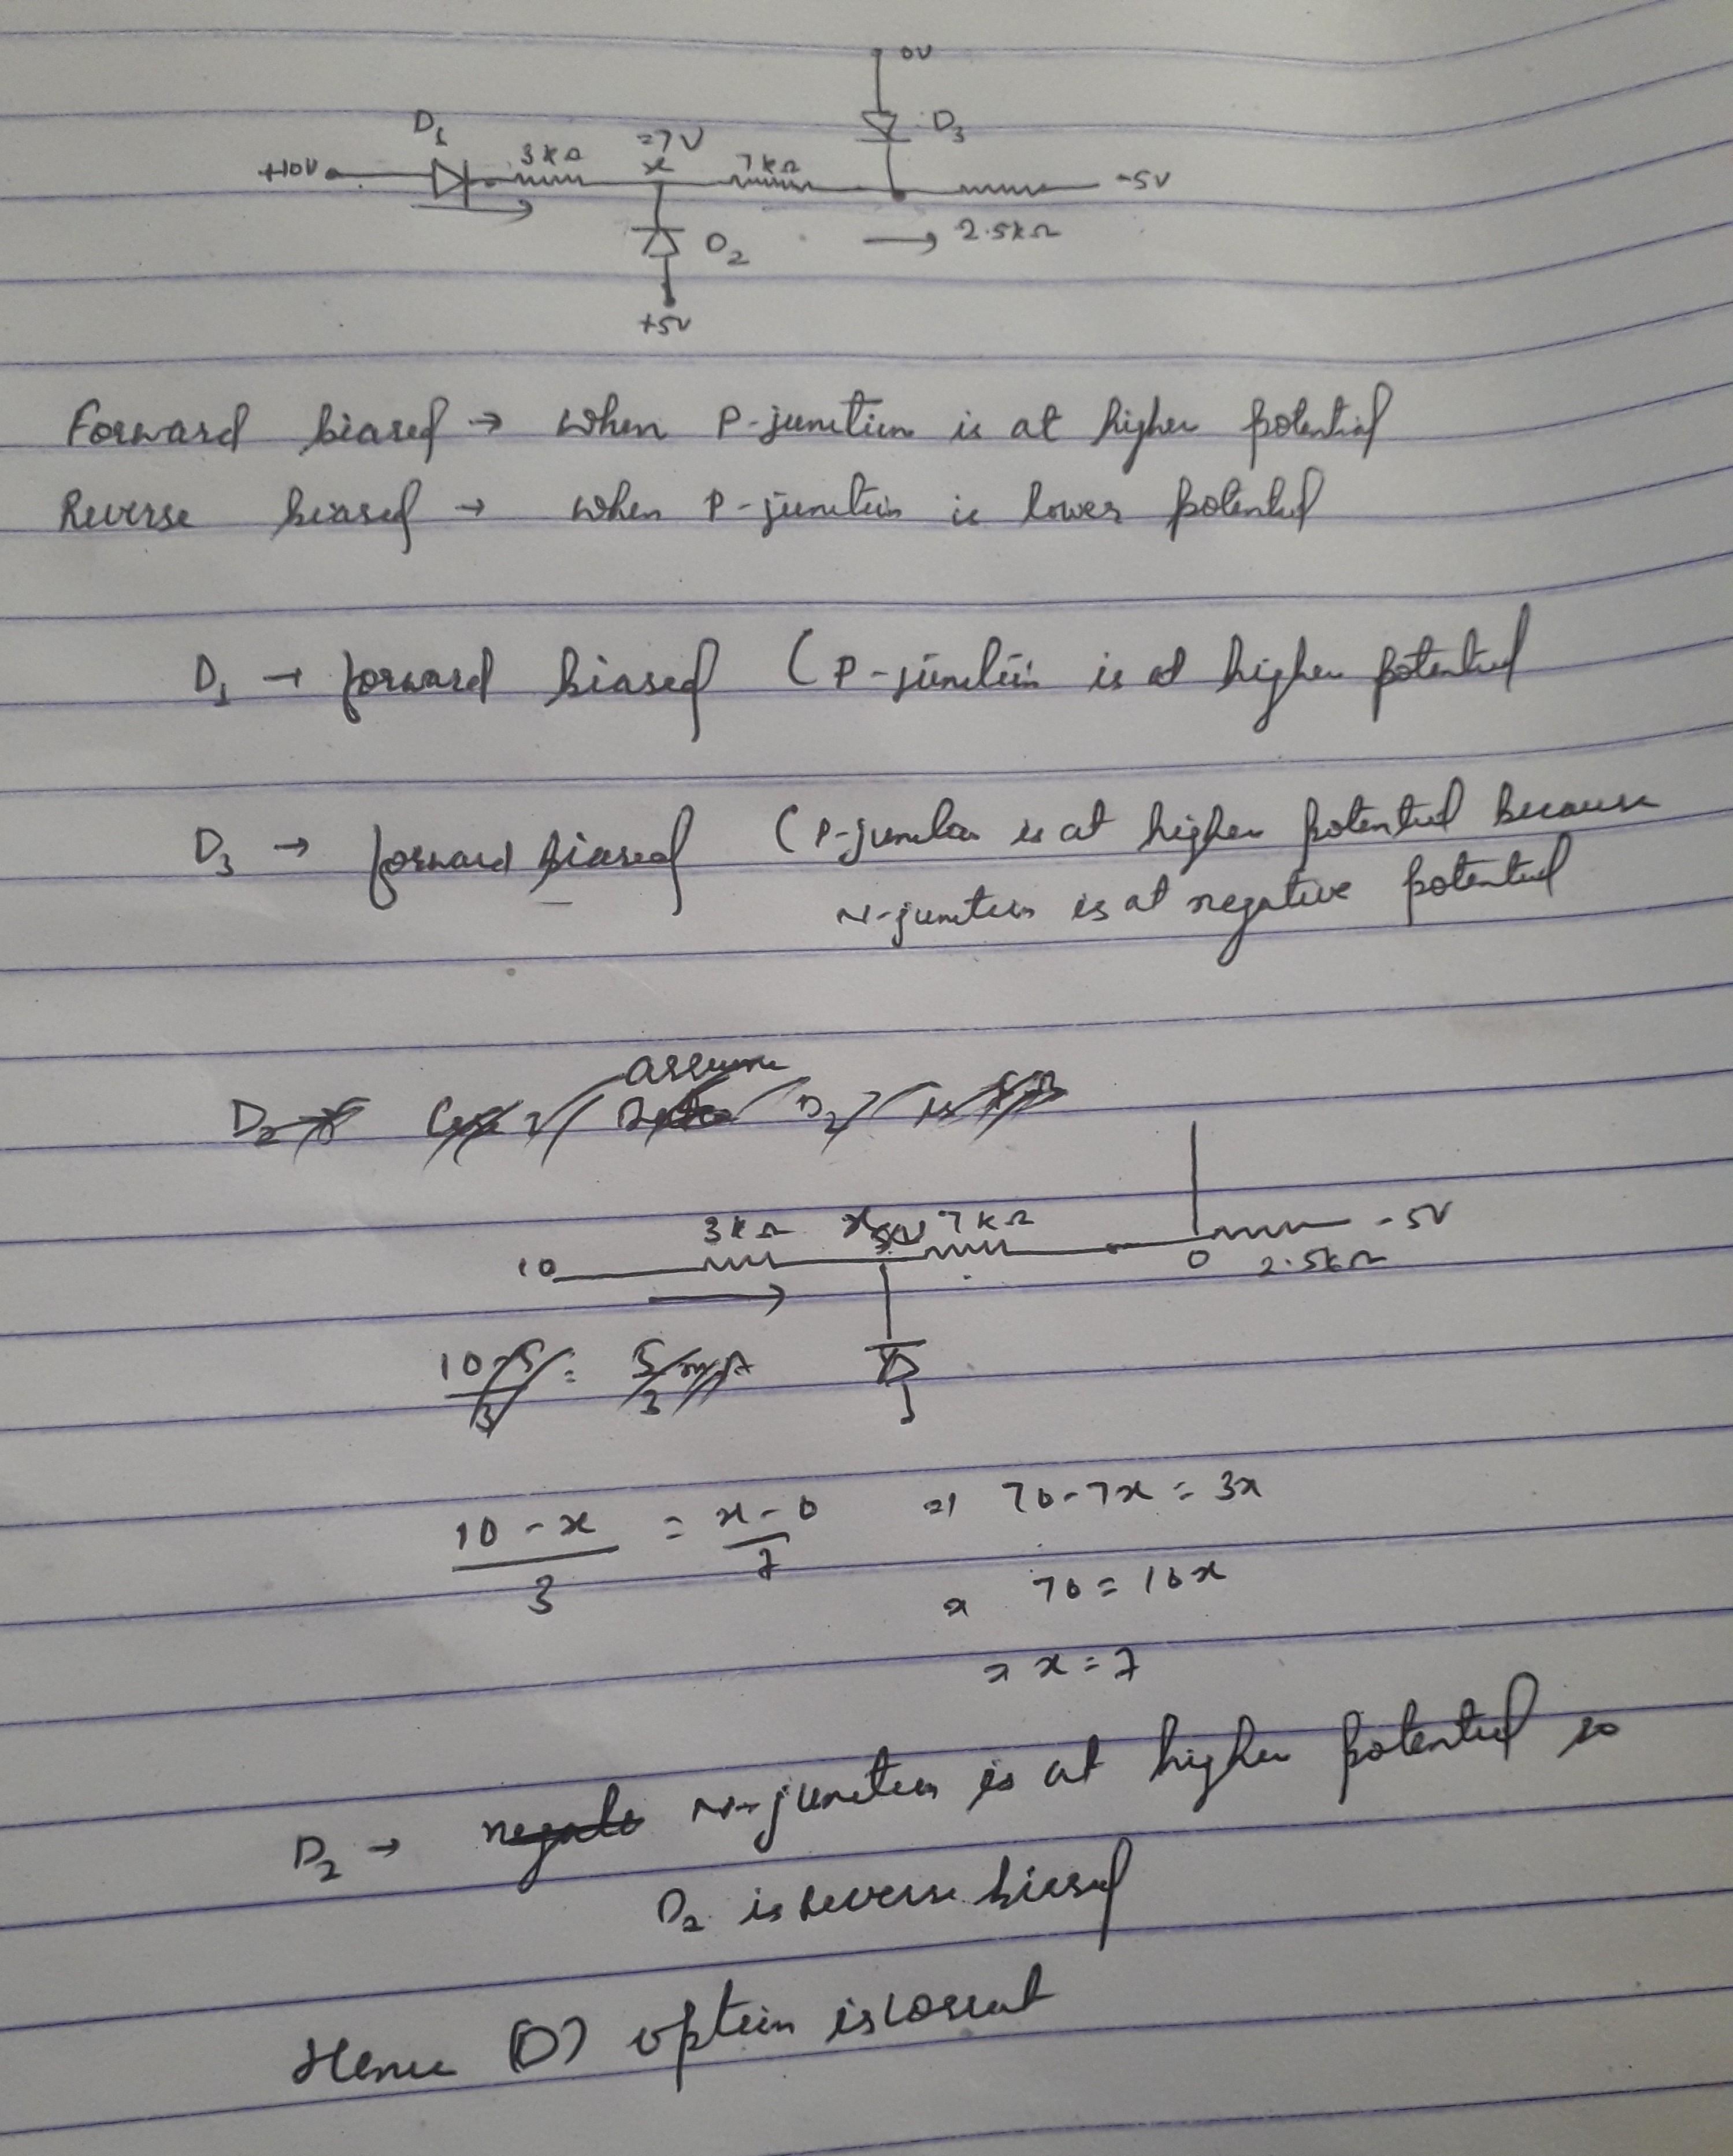 0V
D1
D3
+10V
3kΩ
=7V
x
7kΩ
-5V
2.5kΩ
D2
+5V
Forward biased → when P-junction is at higher potential
Reverse biased → when P-junction is lower potential
D1 → forward biased (P-junction is at higher potential
D3 → forward biased (P-junction is at higher potential because
N-junction is at negative potential
assume
D2
3kΩ x 7kΩ -5V
10 0 2.5kΩ
10-5/3 = 5/3 mA
10-x/3 = x-0/7 => 70-7x = 3x
70 = 10x
x = 7
D2 → N-junction is at higher potential so
D2 is reverse biased
Hence (D) option is correct